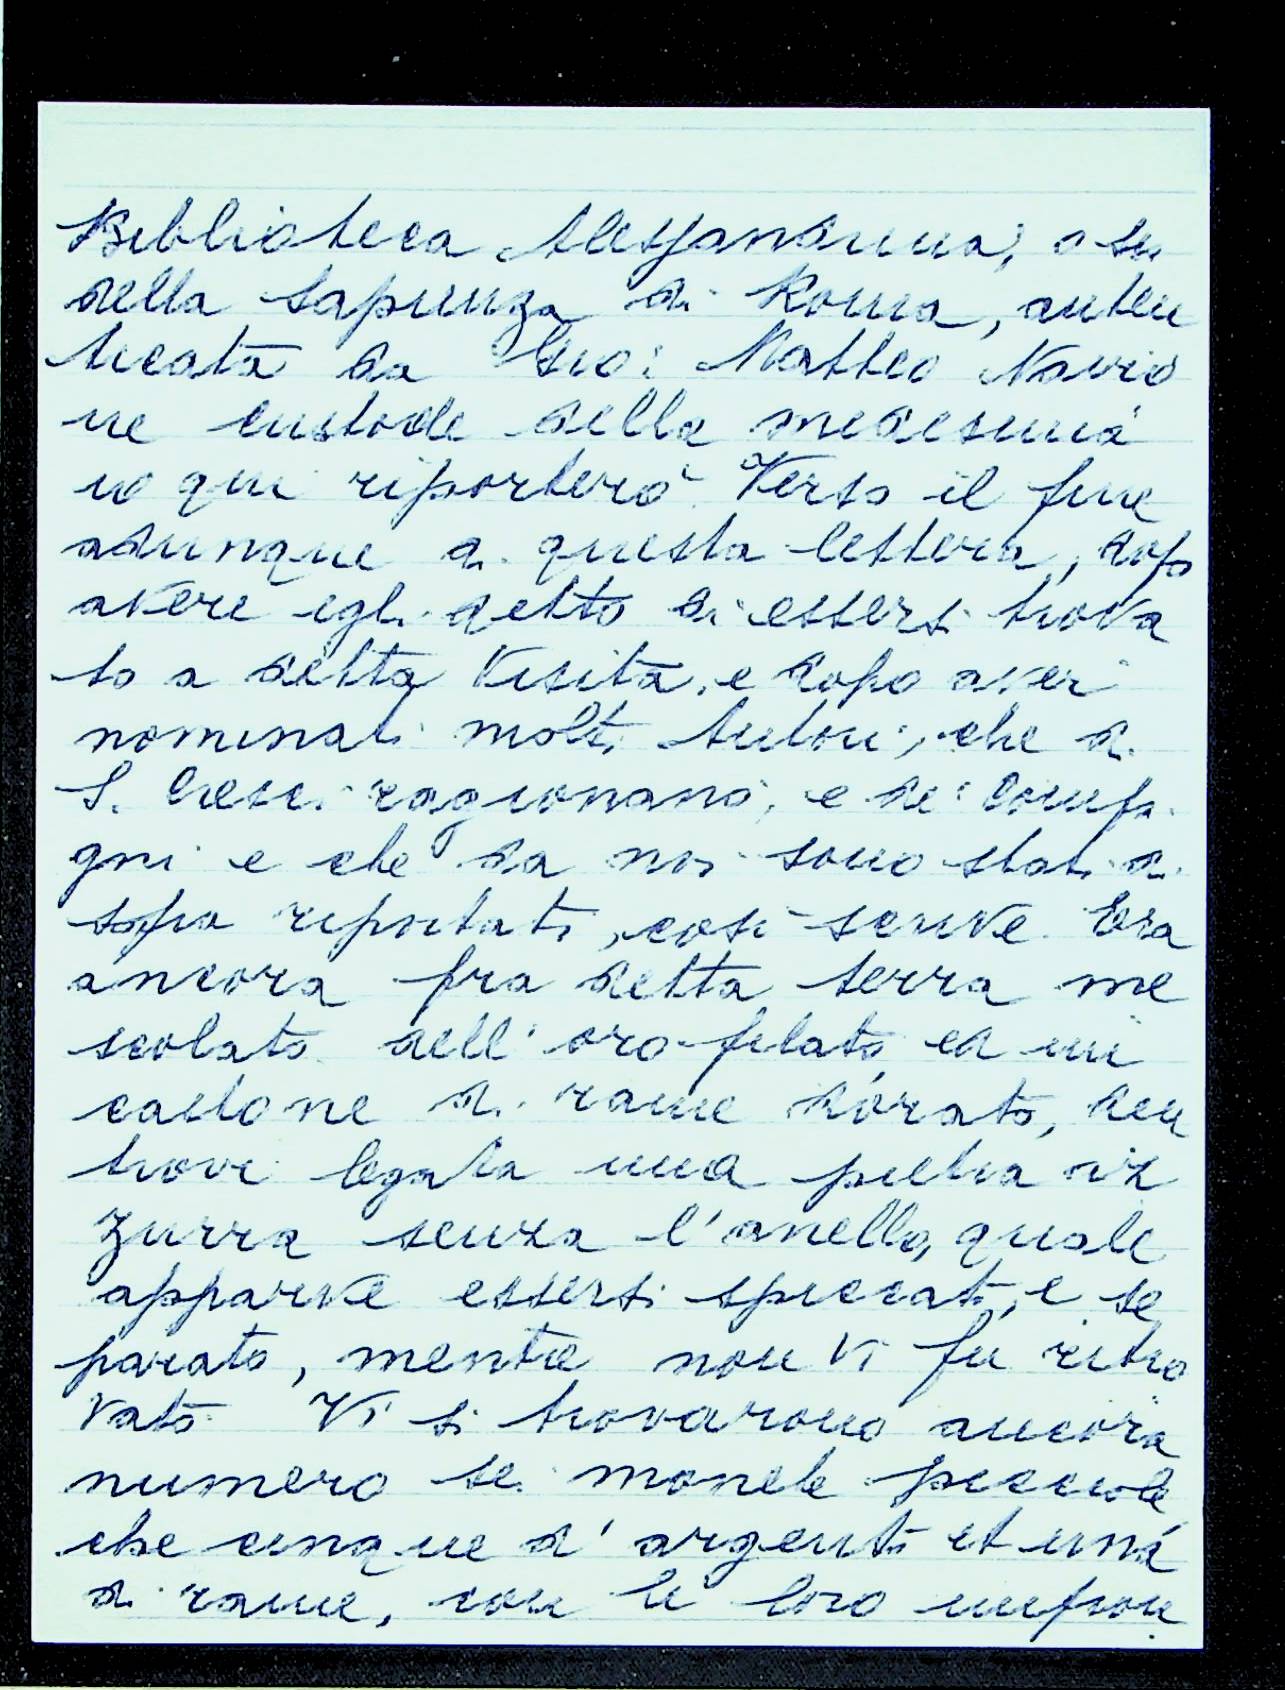 Biblioteca Alessandrina, o sia
della Sapienza di Roma, auten
ticata da Gio: Matteo Navio
ne custode della medesima
io qui riporterò. Verso il fine
adunque di questa lettera, dopo
avere egli detto di essersi trova
to a detta Visita, e dopo aver
nominati molti Autori, che di
S. Cresci ragionano, e de' Compa
gni e che da noi sono stati di
sopra riportati, così scrive. Era
ancora fra detta terra me
scolato dell' oro filato, ed un
castone di rame dorato, den
trovi legata una pietra az
zurra senza l'anello, quale
apparve essersi spiccato, e se
parato, mentre non vi fu ritro
vato. Vi si trovarono ancora
numero sei monete picciole
che cinque d' argento et una
di rame, con le loro impron